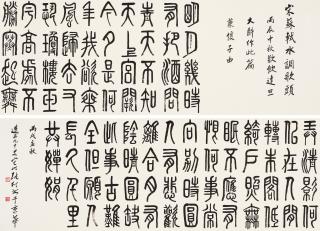 宋蘇軾水調歌頭
丙辰中秋歡飲達旦
大醉作此篇
兼懷子由
明月幾時
有把酒問
青天不知
天上宮闕
今夕是何
年我欲乘
風歸去又
恐瓊樓玉
宇高處不
勝寒起舞
弄清影何
似在人間
轉朱閣低
綺戶照無
眠不應有
恨何事長
向別時圓
人有悲歡
離合月有
陰晴圓缺
此事古難
全但願人
長久千里
共嬋娟
丙戌孟秋